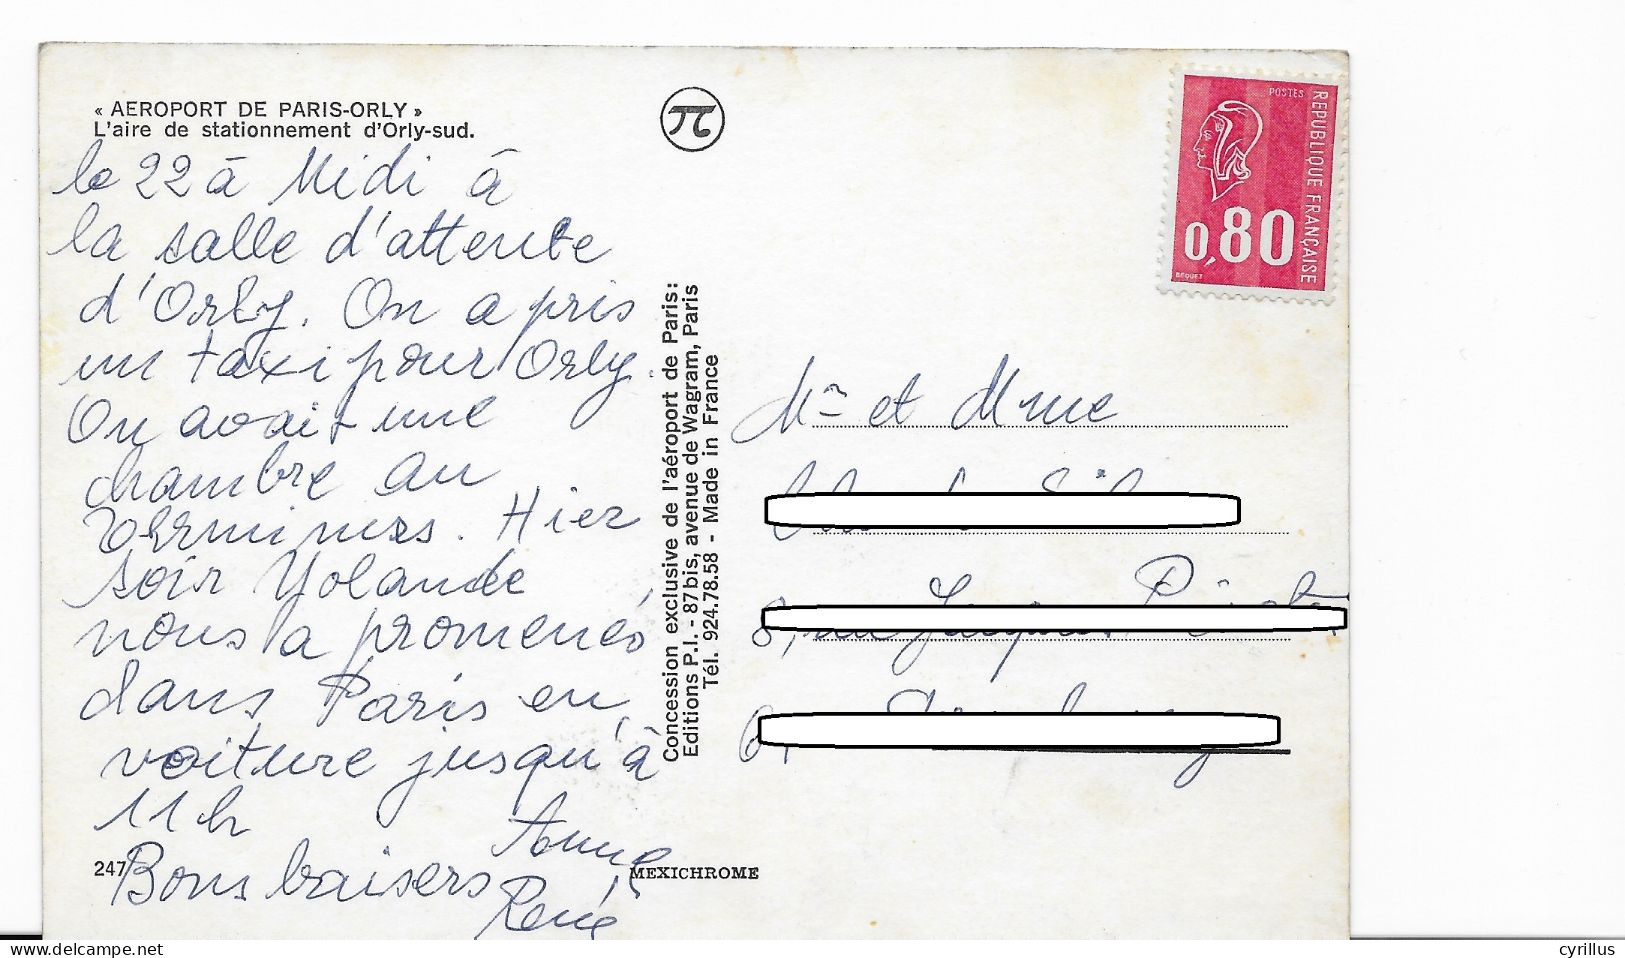 « AEROPORT DE PARIS-ORLY »
L'aire de stationnement d'Orly-sud.
le 22 à Midi à
la salle d'attente
d'Orly. On a pris
un taxi pour Orly.
On avait une
chambre au
Terminus. Hier
soir Yolande
nous a promenés
dans Paris en
voiture jusqu'à
11h
Bons baisers
Anne
René
247
MEXICHROME
Concession exclusive de l'aéroport de Paris:
Editions P.I. - 87 bis, avenue de Wagram, Paris
Tél. 924.78.58 - Made in France
POSTES
REPUBLIQUE FRANÇAISE
0,80
BEQUET
Mr et Mme
8, rue
6
delcampe.net
cyrillus